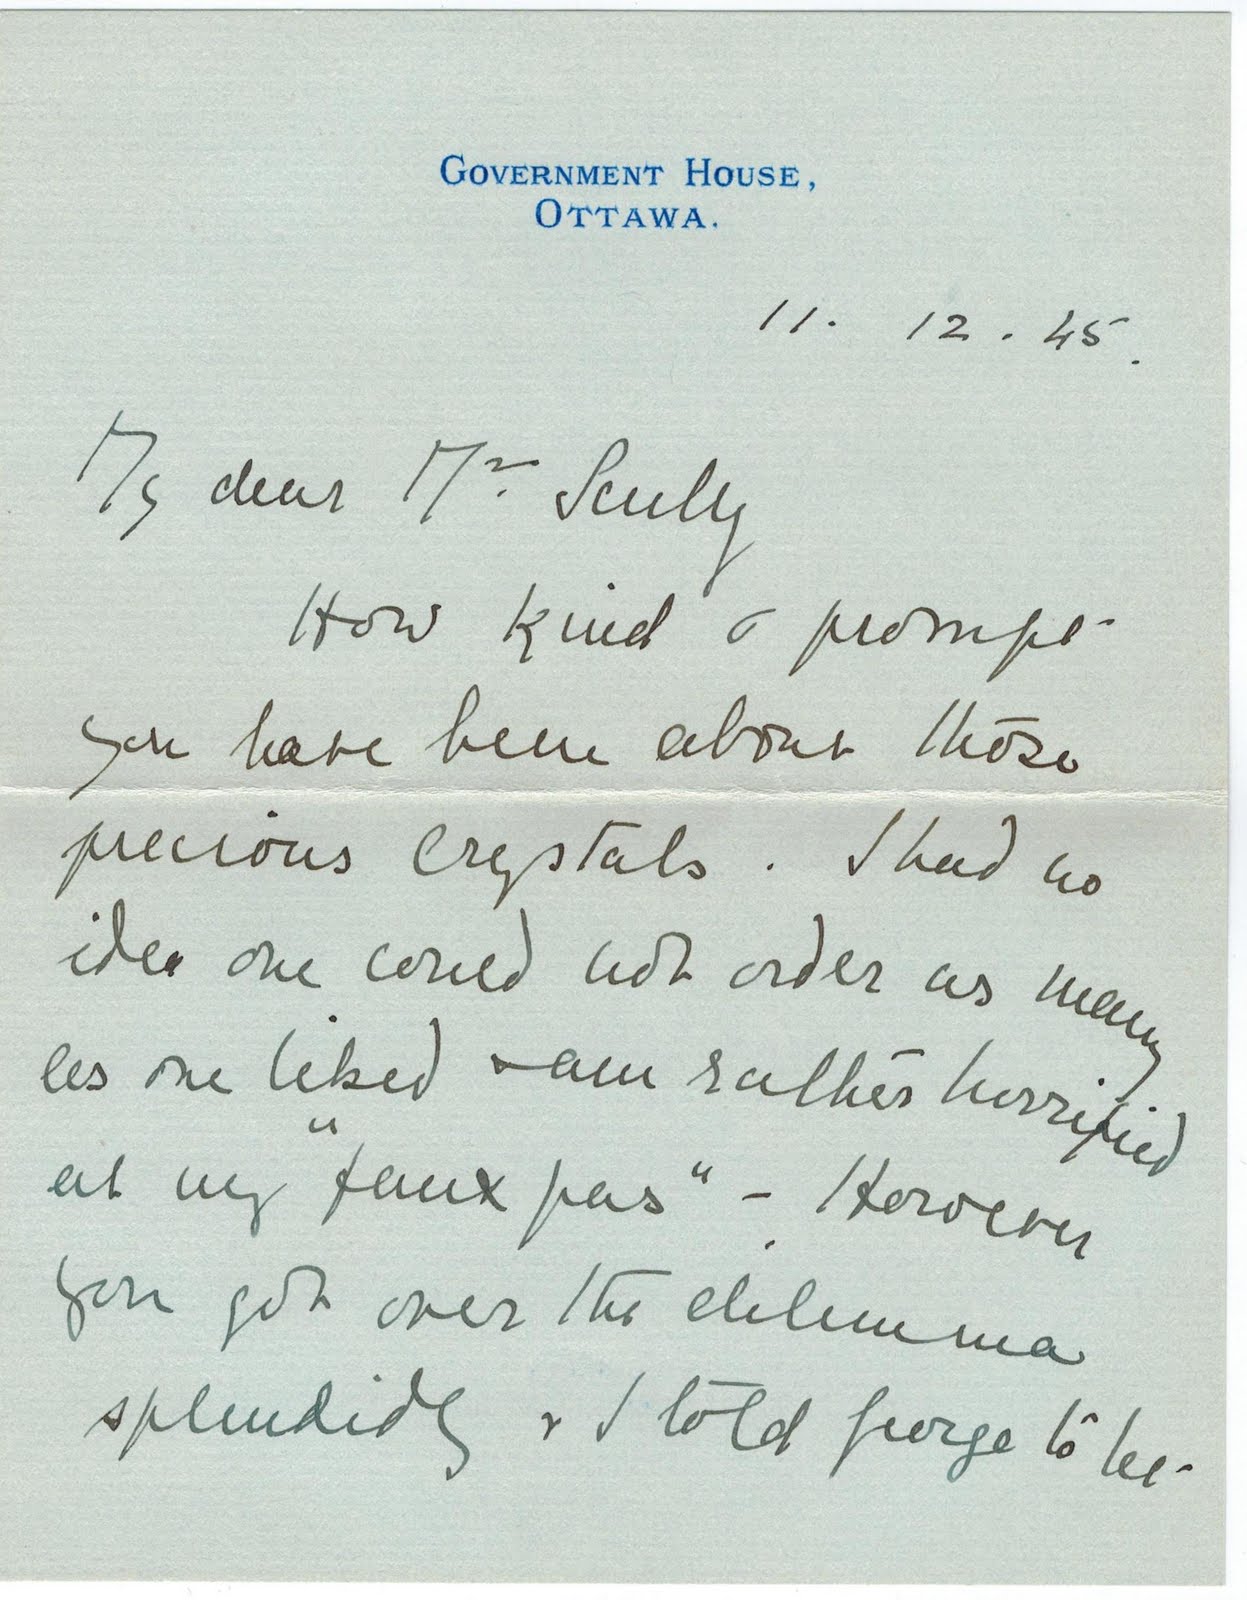 GOVERNMENT HOUSE,
OTTAWA.
11. 12. 45.
My dear Mr. Scully
How kind & prompt
you have been about those
precious crystals. I had no
idea one could not order as many
as one liked & am rather horrified
at my "faux pas" - However
you got over the dilemma
splendidly & I told George to let